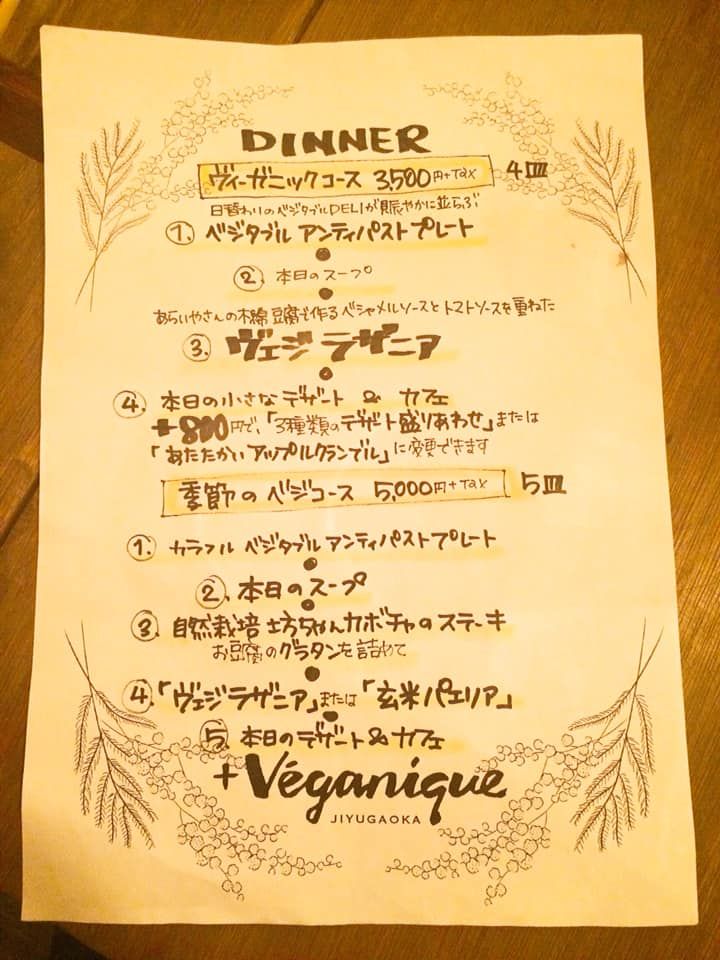 DINNER
ヴィーガニックコース 3,500円+Tax 4皿
日替わりのベジタブルDELIが賑やかに並らぶ
①. ベジタブル アンティパストプレート
②. 本日のスープ
あらいやさんの木綿豆腐で作るベシャメルソースとトマトソースを重ねた
③. ヴェジ ラザニア
④. 本日の小さなデザート & カフェ
+800円で、「3種類のデザート盛りあわせ」または
「あたたかいアップルクランブル」に変更できます
季節のベジコース 5,000円+Tax 5皿
①. カラフル ベジタブルアンティパストプレート
②. 本日のスープ
③. 自然栽培 坊ちゃんカボチャのステーキ
お豆腐のグラタンを詰めて
④. 「ヴェジラザニア」または「玄米パエリア」
⑤. 本日のデザート&カフェ
+Véganique
JIYUGAOKA